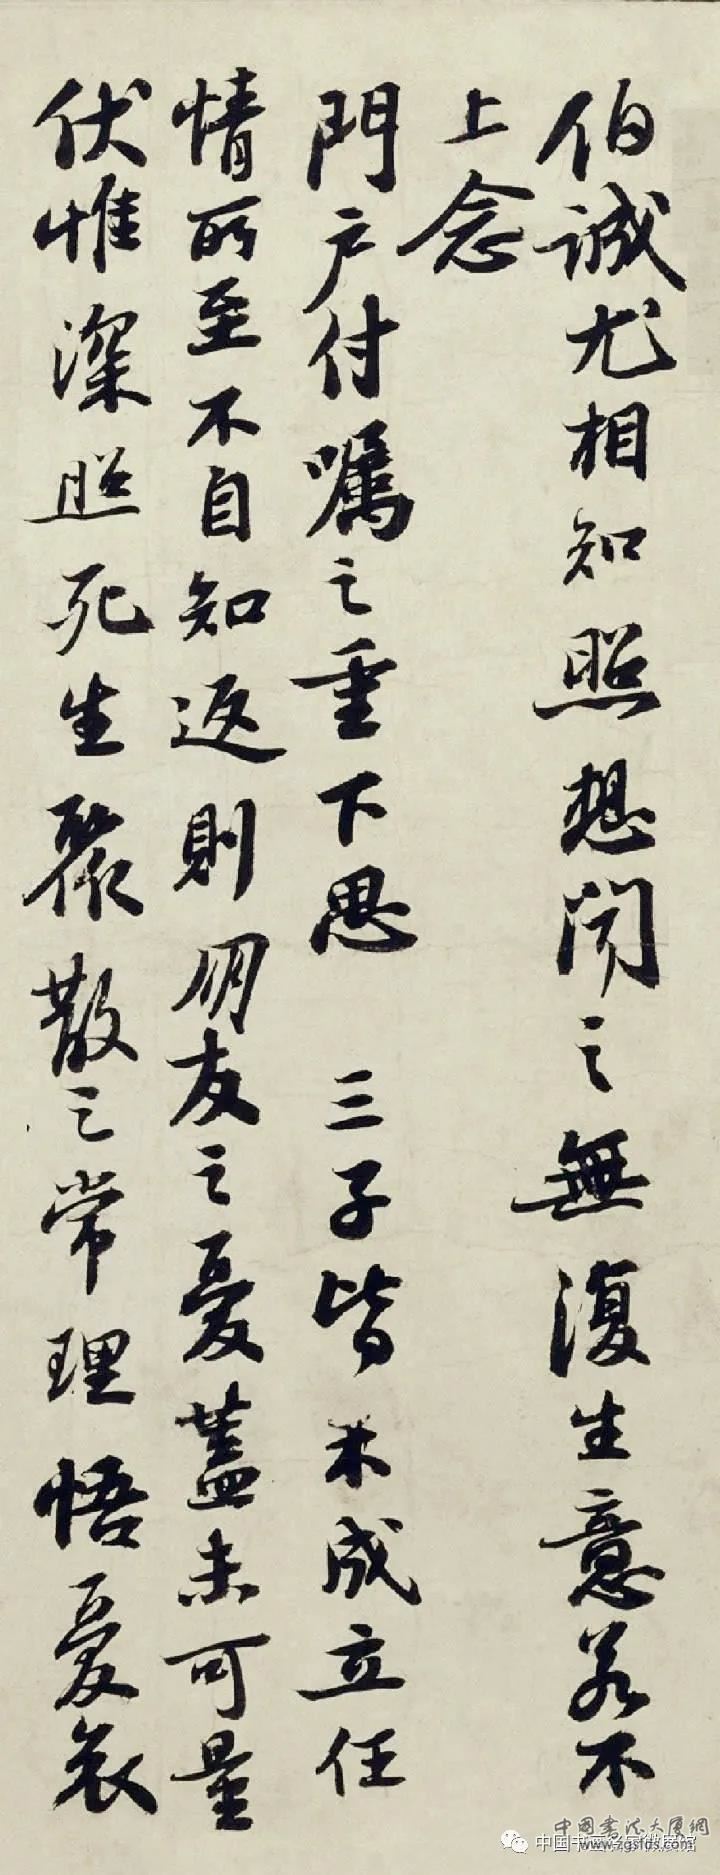 伯誠尤相知照想聞之無復生意若不
上念
門户付囑之重下思 三子皆未成立任
情所至不自知返則朋友之憂蓋未可量
伏惟深照死生聚散之常理悟憂哀
中國書法大厦網
www.zgsfds.com